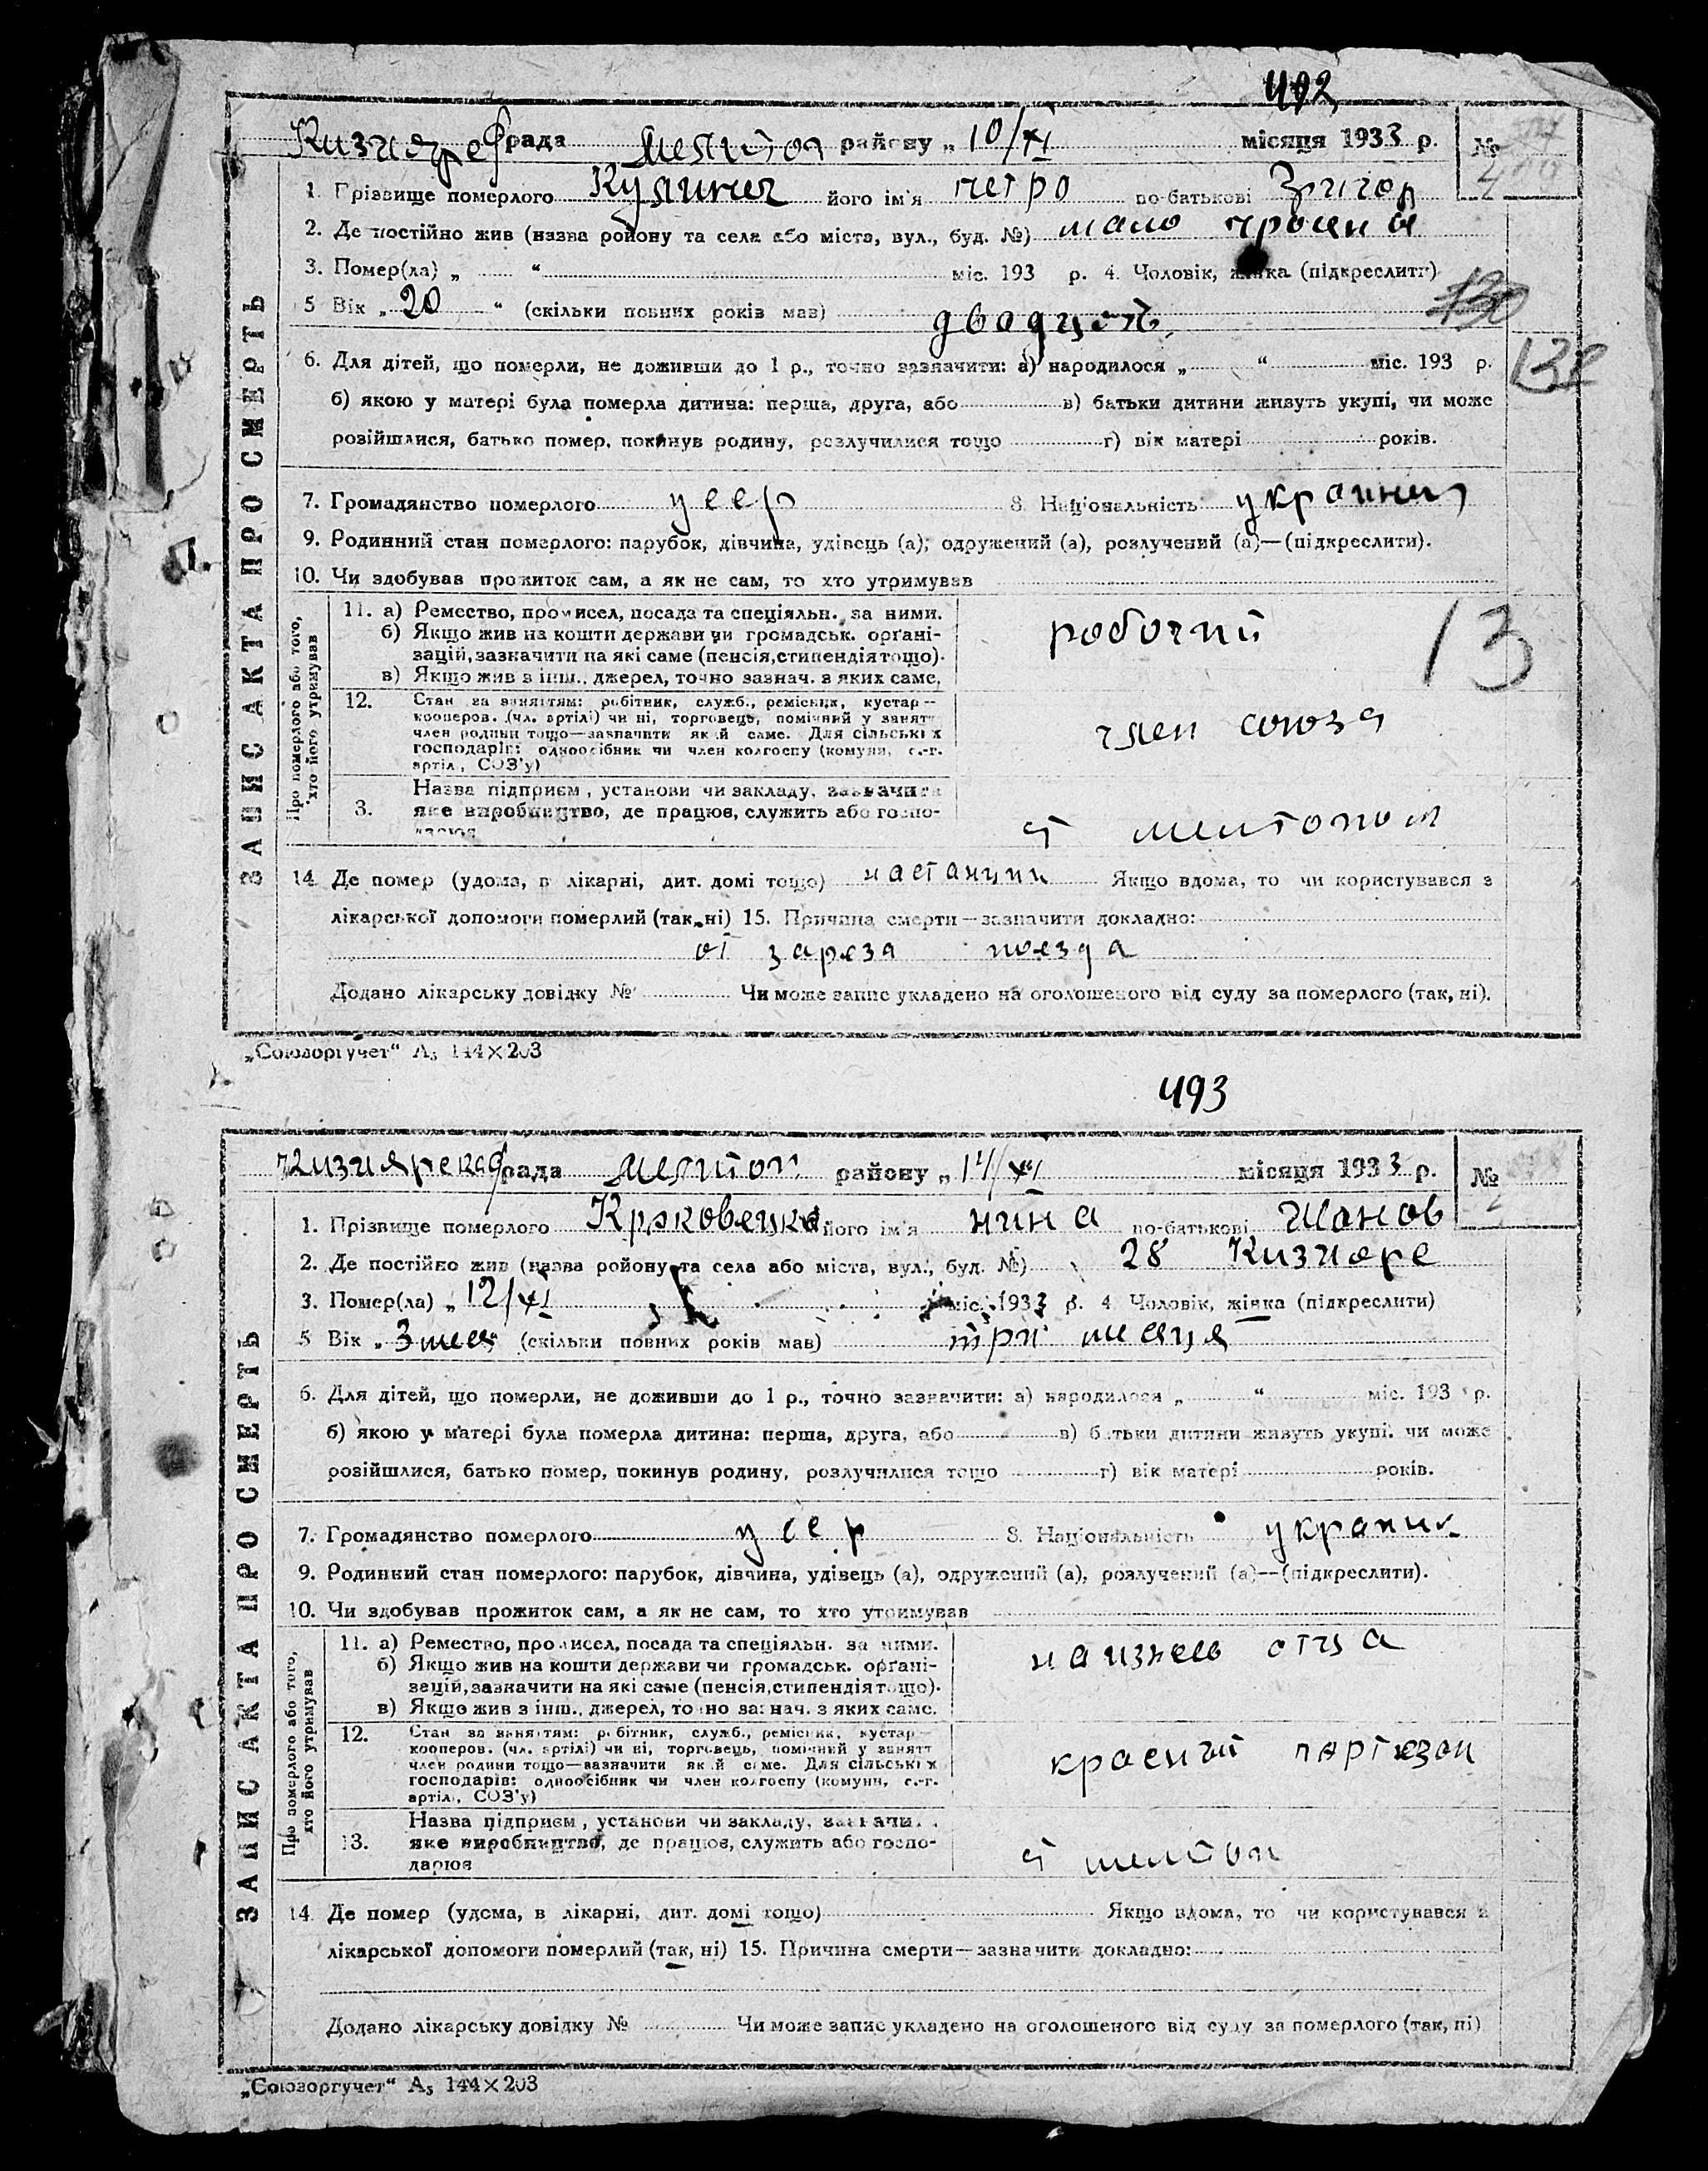 492
Кизияре рада Мелитоп району „ 10/XI місяця 1933 р. №
1. Прізвище померлого Кулинич його ім'я петро по-батькові Григор
2. Де постійно жив (назва району та села або міста, вул., буд. №) мало троицкой
3. Помер(ла) „ “ міс. 193 р. 4. Чоловік, жінка (підкреслити)
5 Вік „ 20 “ (скільки повних років мав) двадцать
130
132
6. Для дітей, що померли, не доживши до 1 р., точно зазначити: а) народилося „ “ міс. 193 р.
б) якою у матері була померла дитина: перша, друга, або в) батьки дитини живуть укупі, чи може
розійшлися, батько помер, покинув родину, розлучилися тощо г) вік матері років.
7. Громадянство померлого усер 8. Національність украинец
9. Родинний стан померлого: парубок, дівчина, удівець (а); одружений (а), розлучений (а)—(підкреслити).
10. Чи здобував прожиток сам, а як не сам, то хто утримував
ЗАПИС АКТА ПРО СМЕРТЬ
Про померлого або того, хто його утримував
11. а) Ремество, промисел, посада та спеціяльн. за ними.
б) Якщо жив на кошти держави чи громадськ. орґані-
зацій, зазначити на які саме (пенсія, стипендія тощо).
в) Якщо жив з інш.. джерел, точно зазнач. з яких саме.
робочий
13
12. Стан за заняттям: робітник, служб., ремісник, кустар—
кооперов. (чл. артілі) чи ні, торговець, помічний у занятт
член родини тощо—зазначити який саме. Для сільських
господарів: одноосібник чи член колгоспу (комуни, с.-г.
артіл., СОЗ'у)
член союза
Назва підприєм., установи чи закладу, зазначити
3. яке виробництво, де працює, служить або госпо-
дарює
ст мелитопол
14. Де помер (удома, в лікарні, дит. домі тощо) настанции Якщо вдома, то чи користувався з
лікарської допомоги померлий (так, ні) 15. Причина смерти—зазначити докладно:
от зареза поезда
Додано лікарську довідку № Чи може запис укладено на оголошеного від суду за померлого (так, ні).
„Союзоргучет“ А₅ 144×203
493
Кизиярекая рада Мелитоп району „ 14/XI місяця 1933 р. №
1. Прізвище померлого Кряковецка його ім'я нина по-батькові Иванов
2. Де постійно жив (назва району та села або міста, вул., буд. №) 28 Кизияре
3. Помер(ла) „ 12/XI міс. 1933 р. 4 Чоловік, жінка (підкреслити)
5 Вік „ 3 мея “ (скільки повних років мав) три месяця
6. Для дітей, що померли, не доживши до 1 р., точно зазначити: а) народилося „ “ міс. 193 р.
б) якою у матері була померла дитина: перша, друга, або в) батьки дитини живуть укупі. чи може
розійшлися, батько помер, покинув родину, розлучилися тощо г) вік матері років.
7. Громадянство померлого усер 8. Національність украин
9. Родинний стан померлого: парубок, дівчина, удівець (а), одружений (а), розлучений (а)—(підкреслити).
10. Чи здобував прожиток сам, а як не сам, то хто утримував
ЗАПИС АКТА ПРО СМЕРТЬ
Про померлого або того, хто його утримував
11. а) Ремество, промисел, посада та спеціяльн. за ними.
б) Якщо жив на кошти держави чи громадськ. орґані-
зацій, зазначити на які саме (пенсія, стипендія тощо).
в) Якщо жив з інш.. джерел, точно зазнач. з яких саме.
наизнев отца
12. Стан за заняттям: робітник, служб., ремісник, кустар—
кооперов. (чл. артілі) чи ні, торговець, помічний у занятт
член родини тощо—зазначити який саме. Для сільських
господарів: одноосібник чи член колгоспу (комуни, с.-г.
артіл., СОЗ'у)
красный партезан
Назва підприєм., установи чи закладу, зазначити
13. яке виробництво, де працює, служить або госпо-
дарює
ст мелитоп
14. Де помер (удома, в лікарні, дит. домі тощо) Якщо вдома, то чи користувався з
лікарської допомоги померлий (так, ні) 15. Причина смерти—зазначити докладно:
Додано лікарську довідку № Чи може запис укладено на оголошеного від суду за померлого (так, ні)
„Союзоргучет“ А₅ 144×203